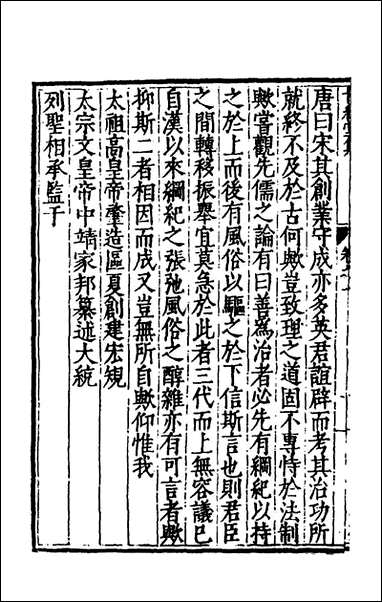 唐曰宋其創業守成亦多英君誼辟而考其治功所
就終不及於古何歟豈致理之道固不專恃於法制
歟嘗觀先儒之論有曰善為治者必先有綱紀以持
之於上而後有風俗以驅之於下信斯言也則君臣
之間轉移振舉宜莫急於此者三代而上無容議已
自漢以來綱紀之張弛風俗之醇雜亦有可言者歟
抑斯二者相因而成又豈無所自歟仰惟我
太祖高皇帝肇造區夏創建宏規
太宗文皇帝中靖家邦纂述大統
列聖相承監于